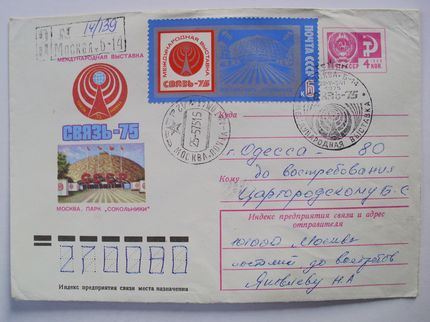 14/139
Москва Б-14
МЕЖДУНАРОДНАЯ ВЫСТАВКА
СВЯЗЬ-75
МОСКВА, ПАРК "СОКОЛЬНИКИ"
МЕЖДУНАРОДНАЯ ВЫСТАВКА
СВЯЗЬ-75
ПОЧТА СССР
ПОЧТА СССР
4 КОП.
МОСКВА-ПОЧТА
СВЯЗЬ-75
МЕЖДУНАРОДНАЯ ВЫСТАВКА
Куда
г. Одесса - 80
Кому до востребования
Царгородскому Б.С
Индекс предприятия связи и адрес отправителя
Москва
до востреб
Яковлеву Н.А
270080
Индекс предприятия связи места назначения